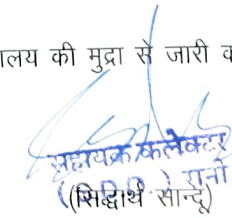 ालय की मुद्रा से जारी क
सहायक कलेक्टर
(सिद्धार्थ सान्दू)